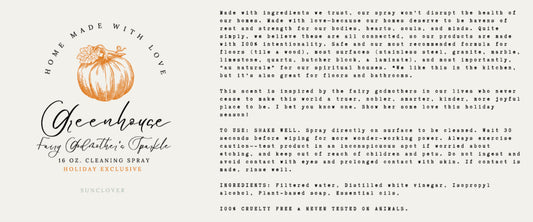 HOME MADE WITH LOVE
Greenhouse
Fairy Godmother's Sparkle
16 OZ. CLEANING SPRAY
HOLIDAY EXCLUSIVE
SUNCLOVER
Made with ingredients we trust, our spray won't disrupt the health of
our homes. Made with love—because our homes deserve to be havens of
rest and strength for our bodies, hearts, souls, and minds. Quite
simply, we believe these are all connected, so our products are made
with 100% intentionality. Safe and our most recommended formula for
floors (tile & wood), most surfaces (stainless steel, granite, marble,
limestone, quartz, butcher block, & laminate), and most importantly,
"au naturale" for our spiritual houses. *We like this in the kitchen,
but it's also great for floors and bathrooms.
This scent is inspired by the fairy godmothers in our lives who never
cease to make this world a truer, nobler, smarter, kinder, more joyful
place to be. I bet you know one. Show her some love this holiday
season!
TO USE: SHAKE WELL. Spray directly on surface to be cleaned. Wait 30
seconds before wiping for more wonder-working power. Always exercise
caution—test product in an inconspicuous spot if worried about
etching, and keep out of reach of children and pets. Do not ingest and
avoid contact with eyes and prolonged contact with skin. If contact is
made, rinse well.
INGREDIENTS: Filtered water, Distilled white vinegar, Isopropyl
alcohol, Plant-based soap, Essential oils.
100% CRUELTY FREE & NEVER TESTED ON ANIMALS.